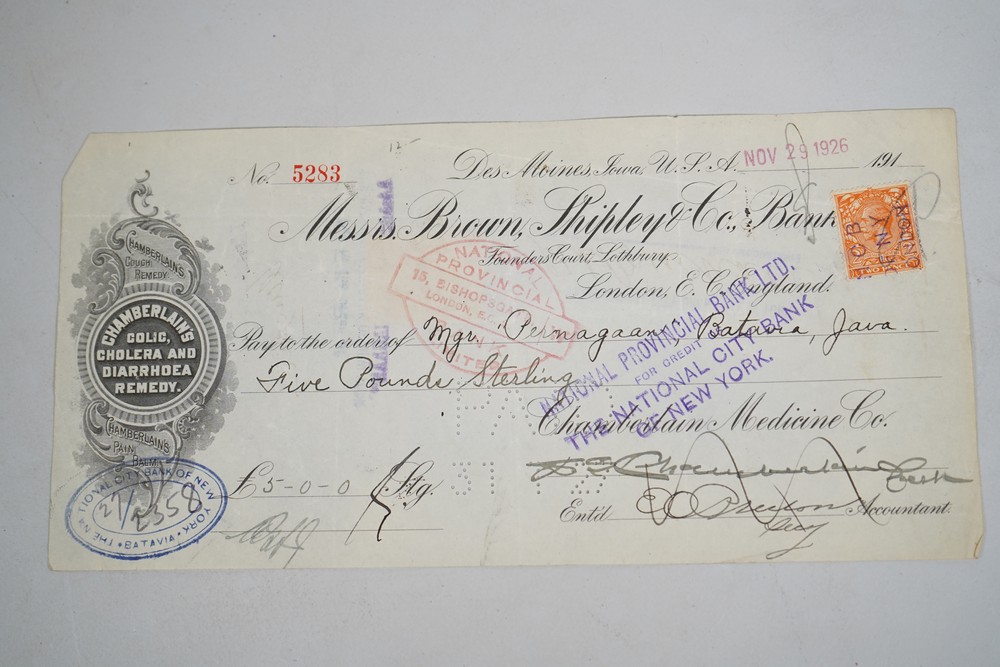 12-
No. 5283
Des Moines, Iowa, U.S.A. NOV 29 1926 191
Messrs. Brown, Shipley & Co., Bank
Founders Court, Lothbury,
London, E.C. England.
TWO PENCE
N.C.B.
N.Y.
NATIONAL
PROVINCIAL
15, BISHOPSGATE
LONDON, E.C.
Pay to the order of Mgr. Pernagaan, Batavia, Java.
Five Pounds Sterling
NATIONAL PROVINCIAL BANK LTD.
FOR CREDIT
THE NATIONAL CITY BANK
OF NEW YORK.
Chamberlain Medicine Co.
£5-0-0 Stg.
D.S. Chamberlain
Ent'd Accountant.
CHAMBERLAIN'S
COUGH
REMEDY
CHAMBERLAIN'S
COLIC,
CHOLERA AND
DIARRHOEA
REMEDY.
CHAMBERLAIN'S
PAIN
BALM
THE NATIONAL CITY BANK OF NEW YORK
2358
BATAVIA